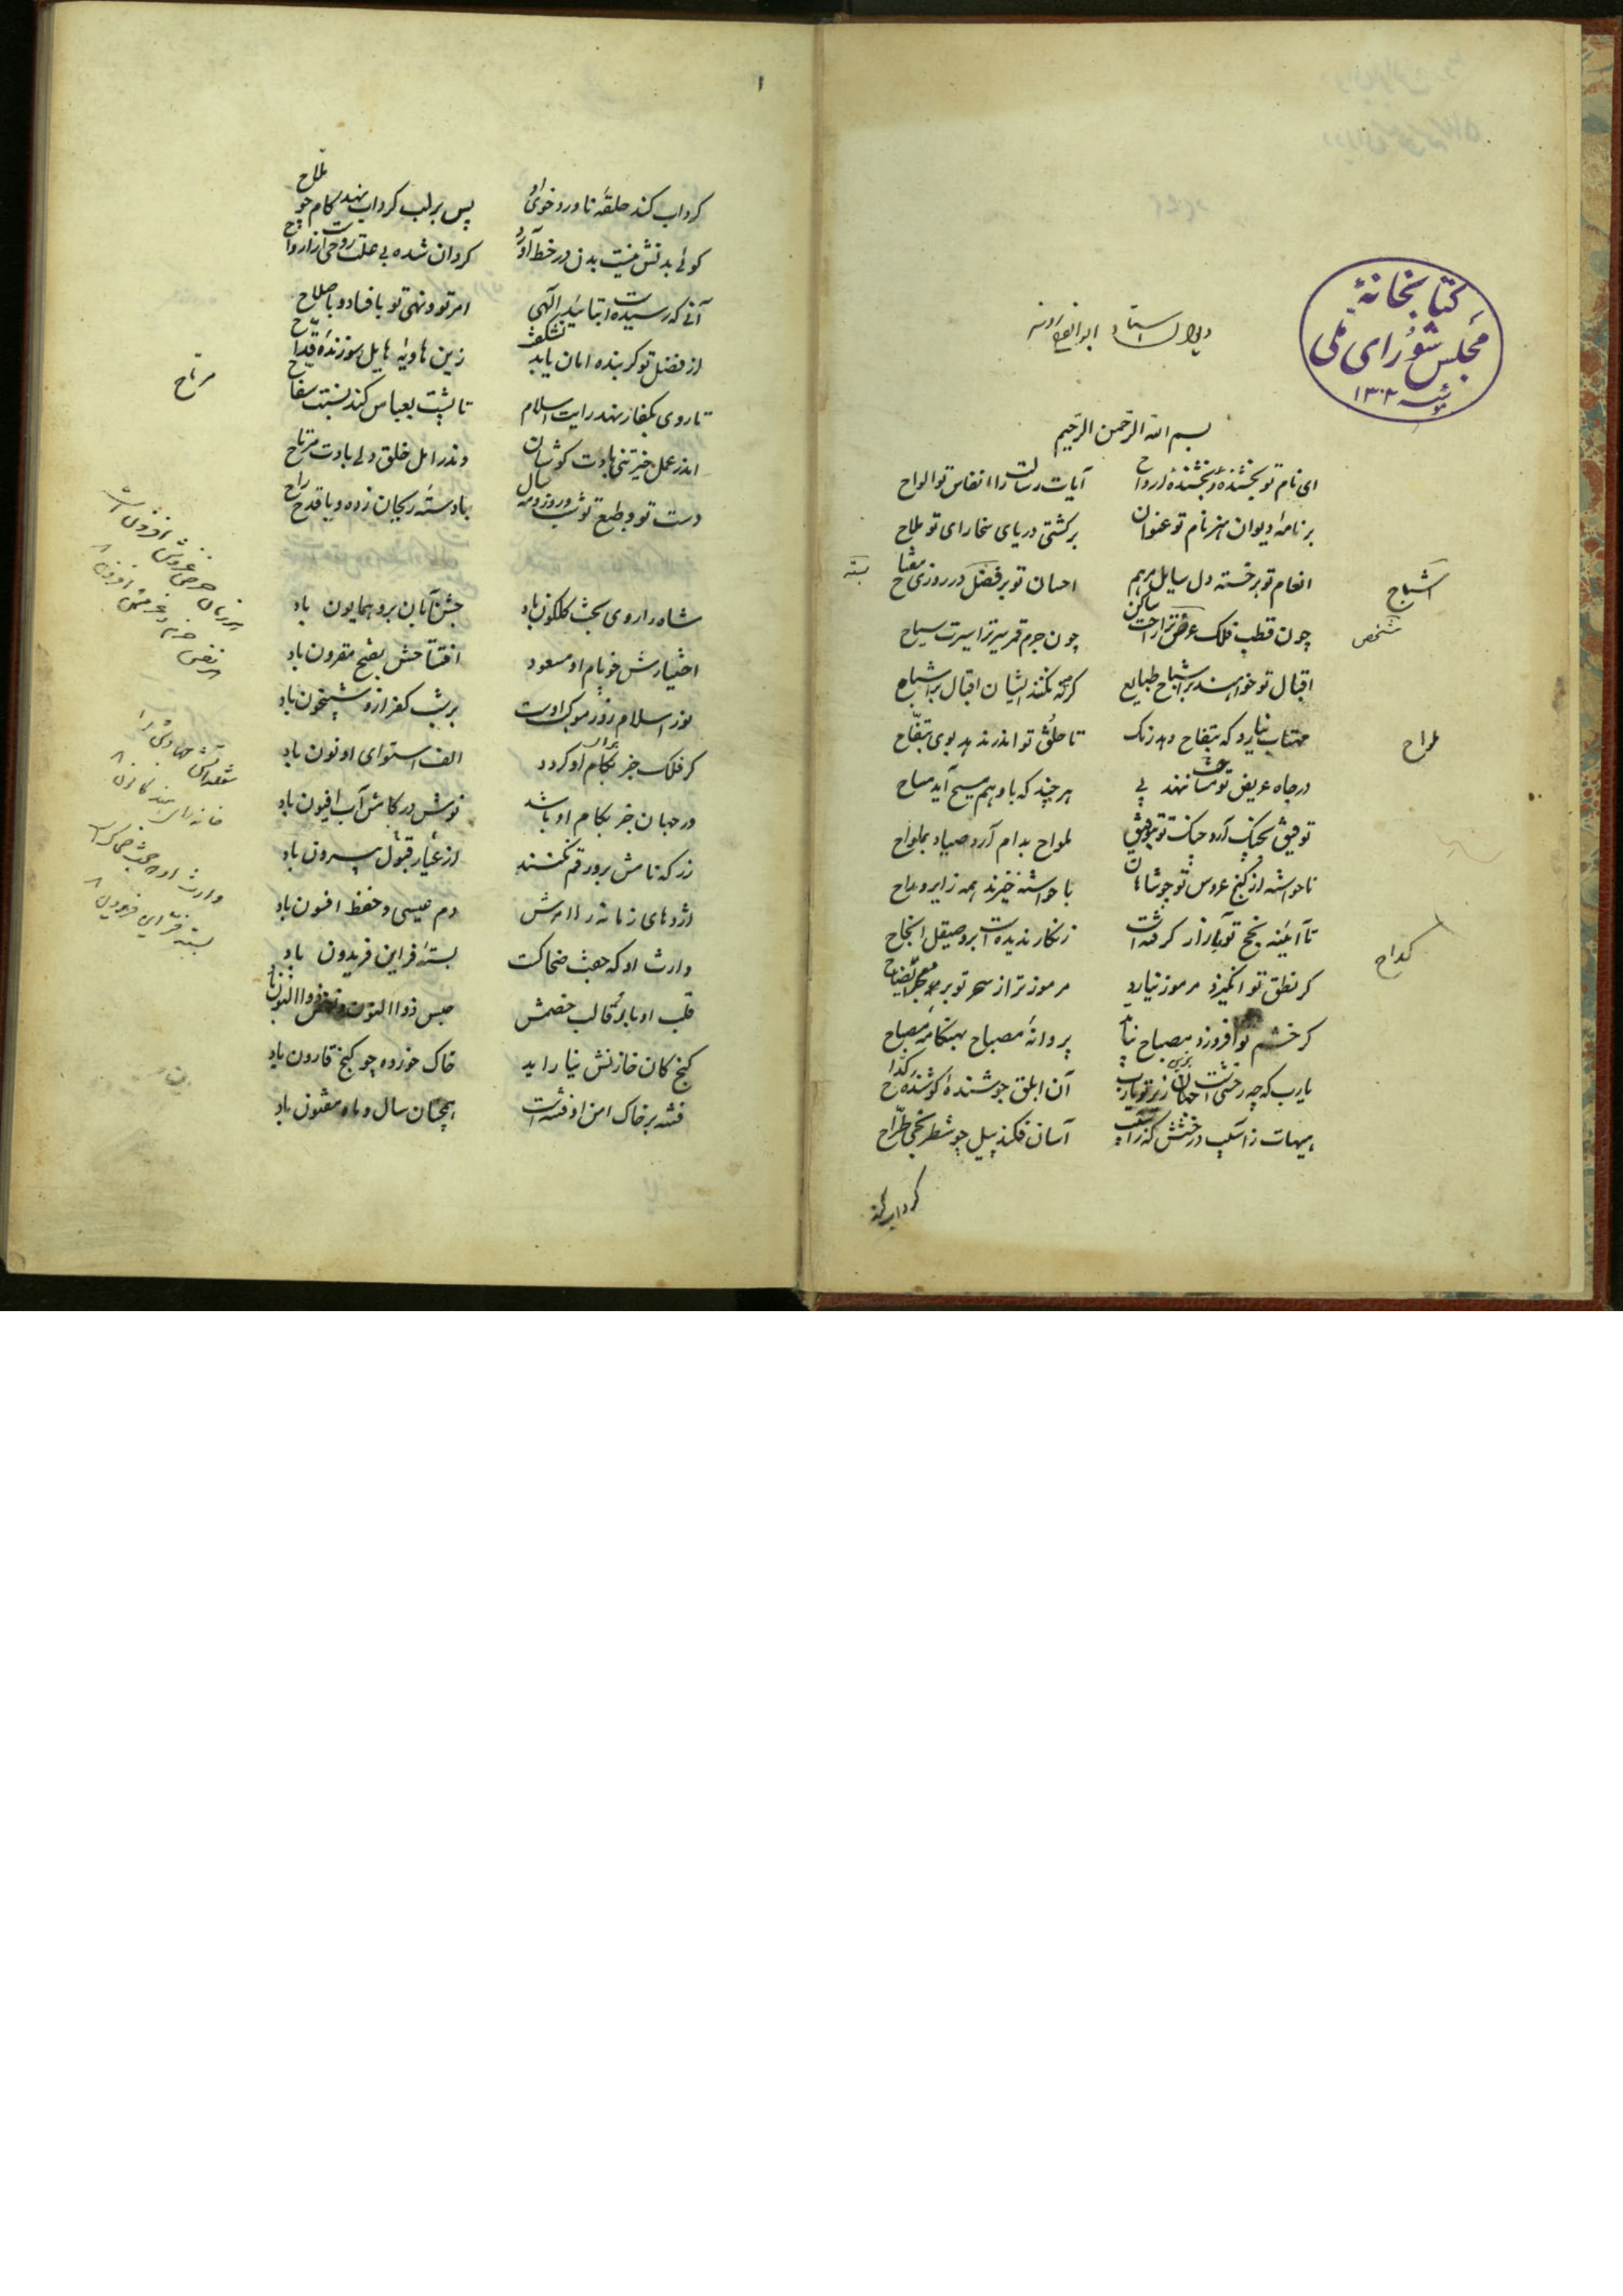 کتابخانهٔ
مجلس شورای ملی
۱۳۰۲
دیوان استاد ابوالفرج رونی
بسم الله الرحمن الرحیم
ای نام تو بخشنده بخشندهٔ ارواح آیات رسالت را انفاس تو الواح
بر نامهٔ دیوان هنر نام تو عنوان بر کشتی دریای سخا رای تو ملاح
انعام تو بر خسته دل سایل مرهم احسان تو بر قفل در روزی مفتاح
چون قطب فلک عرض ترا راحت ساکن چون جرم قمر سیر ترا سیرت سیاح
اقبال تو خواهند بر اشباح طبایع گرچه نکنند ایشان اقبال بر اشباح
مهتاب نیارد که بتفاح دهد رنگ تا خلق تو اندر ندهد بوی بتفاح
در جاه عریض تو مساحت ننهد پی هر چند که با وهم مسیح آید مساح
توفیق بچنگ آرد جنگ تو بتوفیق ملواح بدام آرد صیاد بملواح
ناخواسته از گنج عروس تو جوشاهان با خواسته خیزند همه زایر و مداح
تا آینه نجح تو بازار گرفته است زنگار ندیده است برو صیقل انجاح
گر نطق تو انگیزد مرموز نیارد مرموزتر از سحر تو بر معجز ایضاح
گر خشم تو افروزد مصباح نیابد پروانهٔ مصباح بهنگامهٔ مصباح
یارب که چه رخشی است آن زیر تو یارب آن ابلق جوشندهٔ کوشندهٔ کداح
هیهات ز اسیب درخشش که ز اسیب آسان فکند پیل چو شطرنجی طراح
گرداب کند
اشباح
شخص
ملواح
کداح
بسته
۱
گرداب کند حلقهٔ ناورد خوی او پس بر لب گرداب نهد کام چو ملاح
گوئی بدنش نیست بدن در خط آورد گردان شده بی علت روحیست از ارواح
آنی که رسیده است بتائید الهی امر تو و نهی تو بافساد و باصلاح
از فضل تو گر بنده امان یابد نشگفت زین هاویه هایل سوزندهٔ قداح
تا روی بکفار نهد رایت اسلام تا پشت بعباس کند نسبت سفاح
اندر عمل خیر تنی بادت کوشان وندر امل خلق دلی بادت مرتاح
دست تو و طبع تو شب و روز و مه و سال با دستهٔ ریحان زده و با قدح راح
مرتاح
شاه را روی بخت گلگون باد جشن آبان برو همایون باد
اختیارش خوبام او مسعود افتتاحش بفتح مقرون باد
نور اسلام زور موکب اوست بر شب کفر ازو شبیخون باد
گر فلک جز بکام او گردد الف استوای او نون باد
ور جهان جز بکام او باشد نوش در کامش آب افیون باد
زر که نامش برو رقم نکنند از عیار قبول بیرون باد
اژدهای زمانه را امرش دم عیسی و حفظ افسون باد
وارث او که جفت ضحاکست بستهٔ فر این فریدون باد
قلب او باد قالب خصمش حبس ذوالنون و نفس ذوالنون باد
گنج کان خازنش نیاراید خاک خورده چو گنج قارون باد
فتنه بر خاک امن او فتنه است همچنان سال و ماه مفتون باد